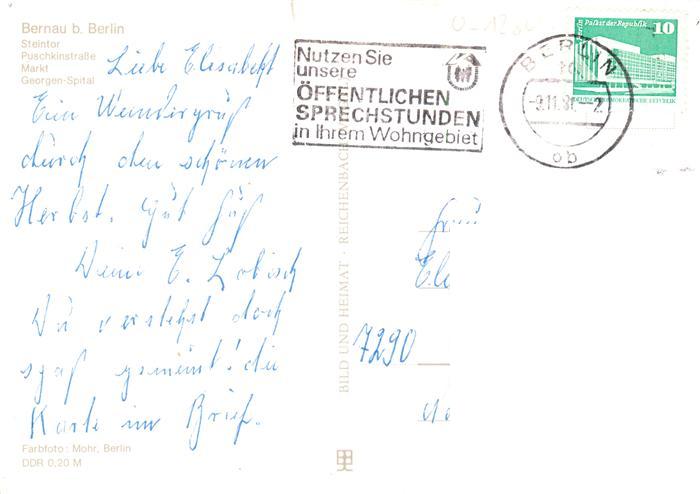 Bernau b. Berlin
Steintor
Puschkinstraße
Markt
Georgen-Spital
Liebe Elisabeth
Ein Wandergruß
durch den schönen
Herbst. Gut Fuß
Deine E. Lobisch
Du verstehst doch
spaß gemeint! die
Karte im Brief.
Farbfoto: Mohr, Berlin
DDR 0,20 M
BILD UND HEIMAT · REICHENBACH
Nutzen Sie
unsere
ÖFFENTLICHEN
SPRECHSTUNDEN
in Ihrem Wohngebiet
BERLIN
ob
Palast der Republik 10
DEUTSCHE DEMOKRATISCHE REPUBLIK
Frau
7290